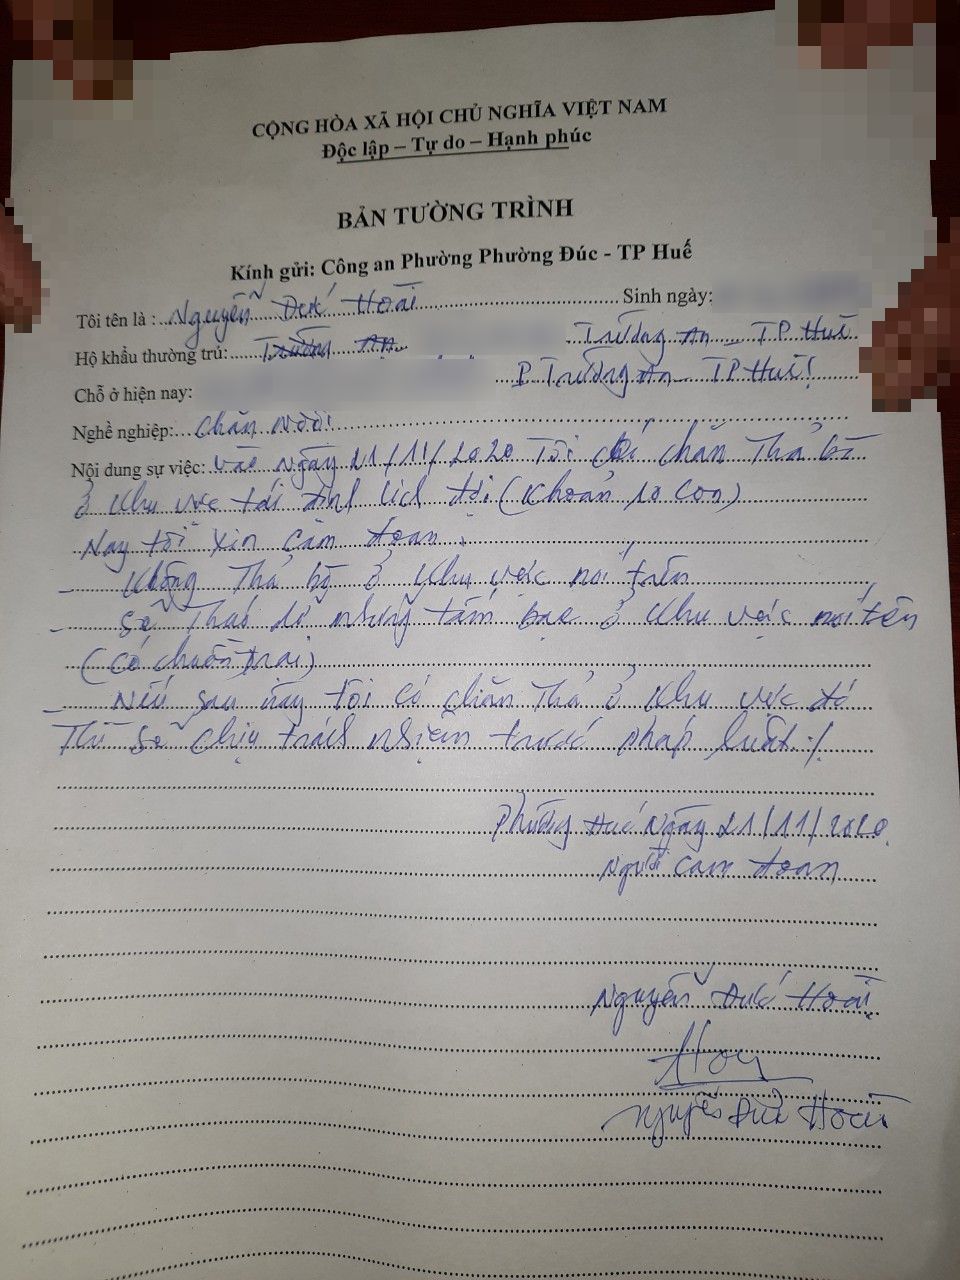 CỘNG HÒA XÃ HỘI CHỦ NGHĨA VIỆT NAM
Độc lập – Tự do – Hạnh phúc
BẢN TƯỜNG TRÌNH
Kính gửi: Công an Phường Phường Đúc - TP Huế
Tôi tên là : Nguyễn Đức Hoài Sinh ngày:
Hộ khẩu thường trú: Trường An Trường An - TP Huế
Chỗ ở hiện nay: P Trường An - TP Huế!
Nghề nghiệp: Chăn nuôi
Nội dung sự việc: Vào ngày 21/11/2020 Tôi có chăn Thả bò
ở khu vực tái định lịch đợi (khoản 10 con)
Nay tôi xin cam đoan :
- không Thả bò ở khu vực nói trên
- Sẽ Tháo dỡ những tấm bạc ở khu vực nói trên
(có chuồn trại)
- Nếu sau này tôi có chăn Thả ở khu vực đó
Thì sẽ chịu trách nhiệm trước pháp luật ./
Phường Đúc Ngày 21/11/2020
Người cam đoan
Nguyễn Đức Hoài
Hoài
Nguyễn Đức Hoài